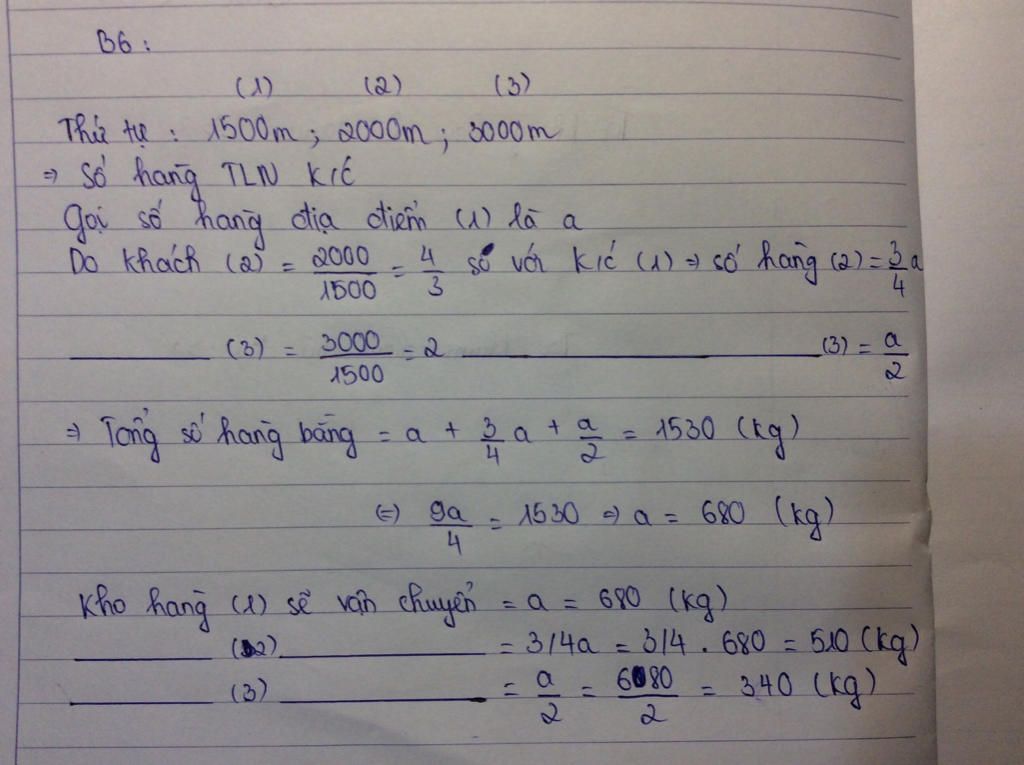 B6 :
(1) (2) (3)
Thứ tự : 1500m ; 2000m ; 3000m
⇒ Số hàng TLN K/C
Gọi số hàng địa điểm (1) là a
Do khách (2) = 2000/1500 = 4/3 số với K/c (1) ⇒ số hàng (2) = 3/4 a
_______ (3) = 3000/1500 = 2 _______ (3) = a/2
⇒ Tổng số hàng bằng = a + 3/4 a + a/2 = 1530 (kg)
(=) 9a/4 = 1530 ⇒ a = 680 (kg)
Kho hàng (1) sẽ vận chuyển = a = 680 (kg)
_______ (2) _______ = 3/4a = 3/4 . 680 = 510 (kg)
_______ (3) _______ = a/2 = 680/2 = 340 (kg)